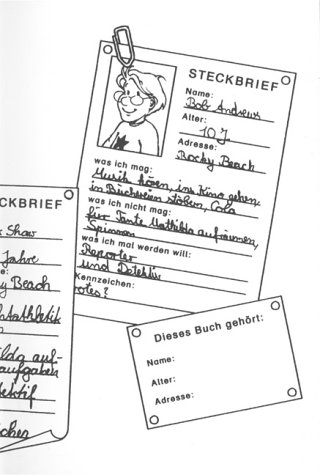 STECKBRIEF
Name:
Bob Andrews
Alter:
10 J
Adresse:
Rocky Beach
was ich mag:
Musik hören, ins Kino gehen
in Büchereien stöbern, Cola
was ich nicht mag:
für Tante Mathilda aufräumen,
Spinnen
was ich mal werden will:
Reporter
und Detektiv
Kennzeichen:
otes?
CKBRIEF
Shaw
Jahre
e:
y Beach
ntathletik
ilda auf-
aufgaben
tektif
ichen
Dieses Buch gehört:
Name:
Alter:
Adresse: